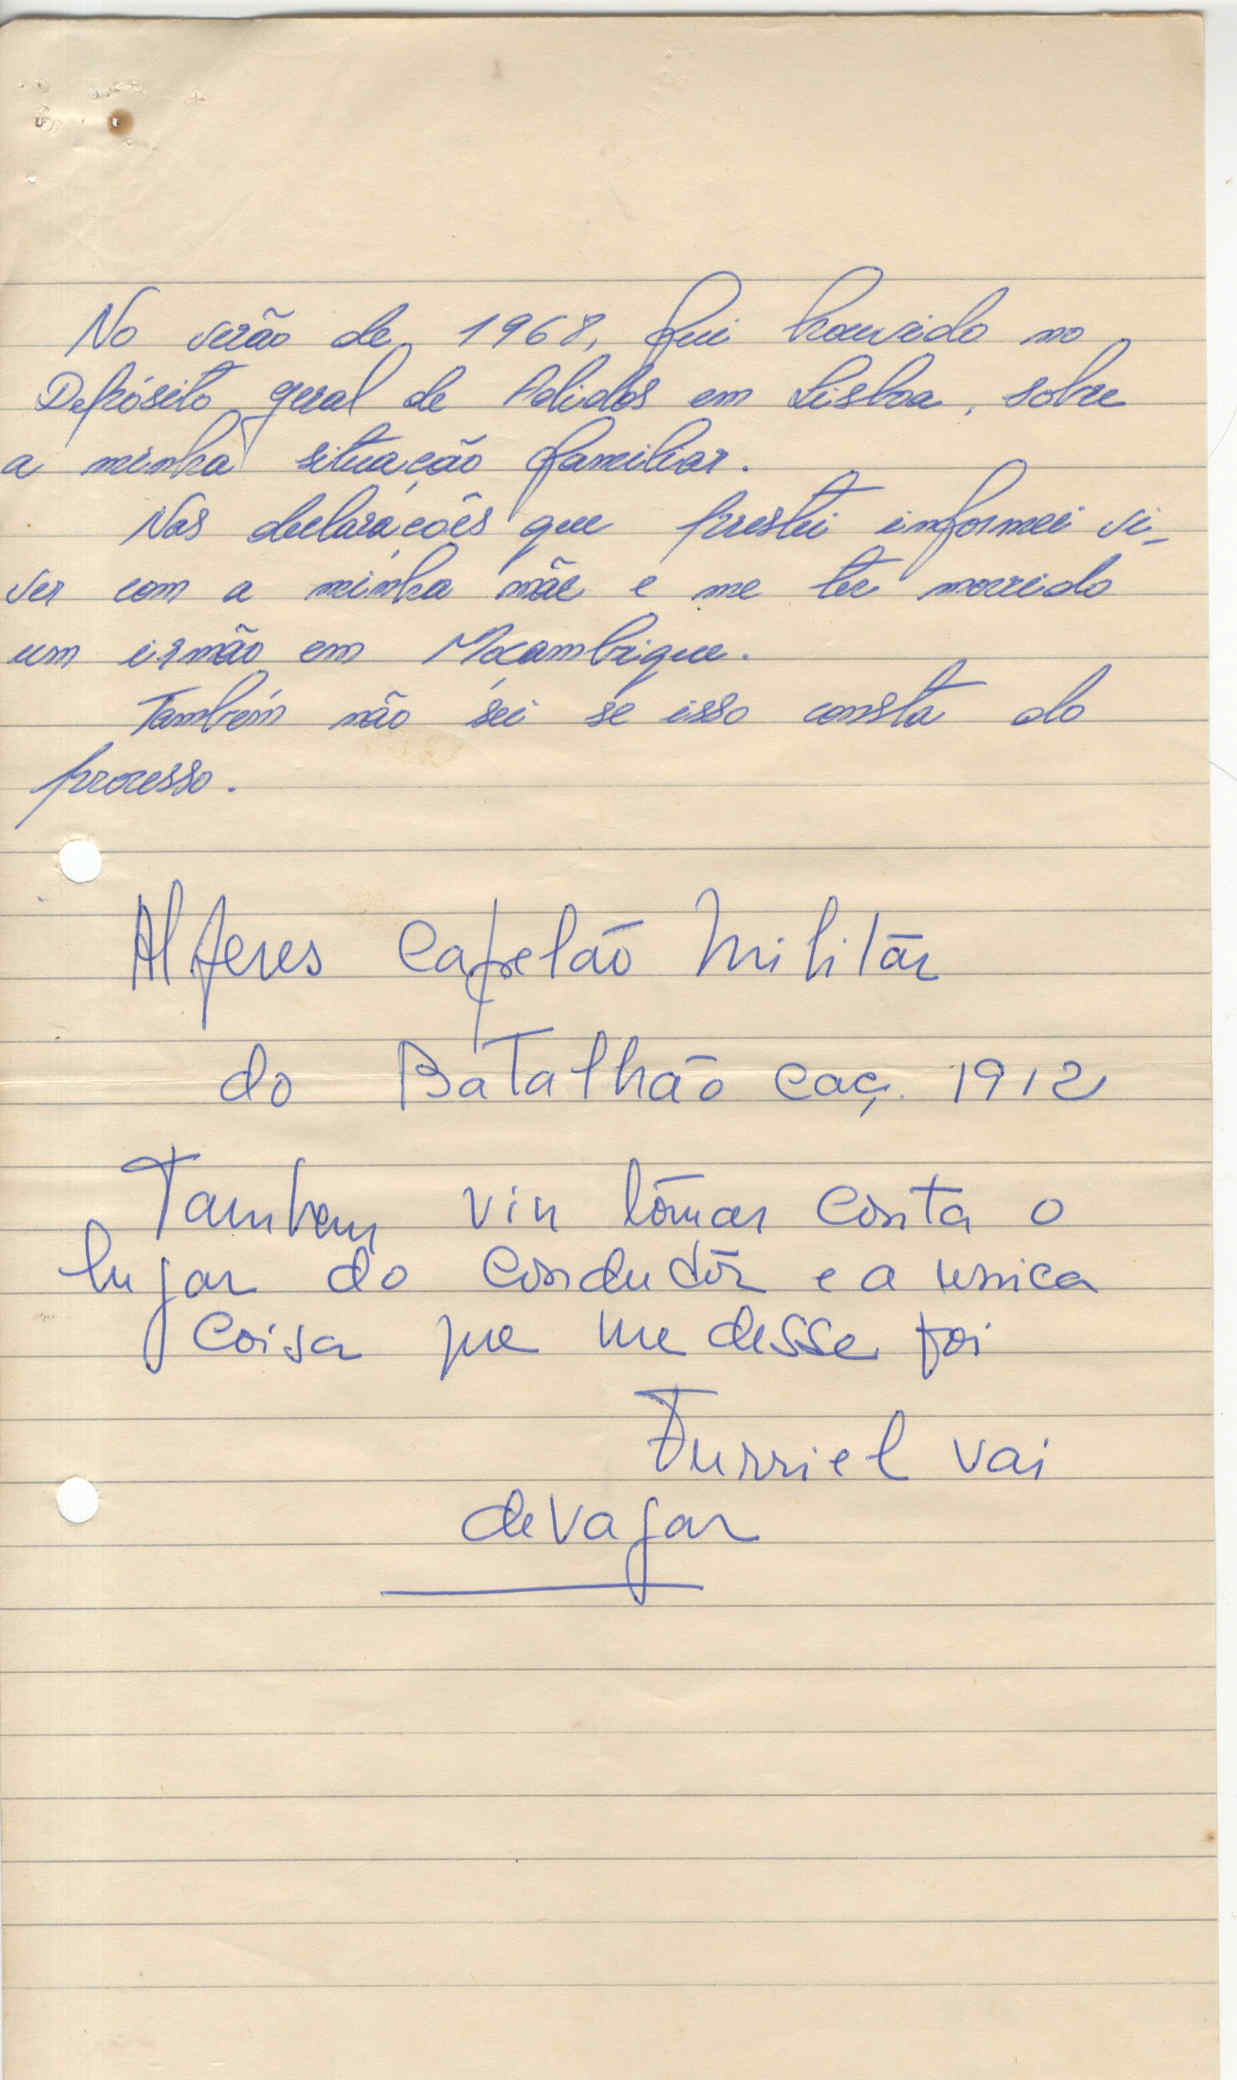 No verão de 1968, fui houvido no
Depósito geral de Adidos em Lisboa, sobre
a minha situação familiar.
Nas declarações que prestei informei vi-
ver com a minha mãe e me ter morrido
um irmão em Moçambique.
Também não sei se isso consta do
processo.
Alferes Capelão Militár
do Batalhão caç. 1912
Tambem vin tômar conta o
lugar do condutôr e a unica
coisa que me desse foi
Furriel vai
devagar